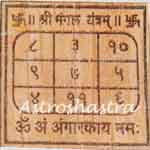 ॥ श्री मंगल यंत्रम् ॥
८ ३ १०
९ ७ ५
४ ११ ६
Astroshastra
ॐ अं अंगारकाय नमः